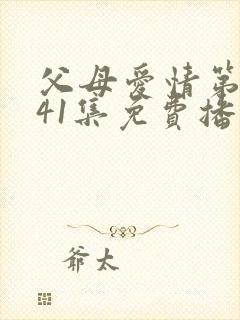 父母愛情第
41集免費播
爺太